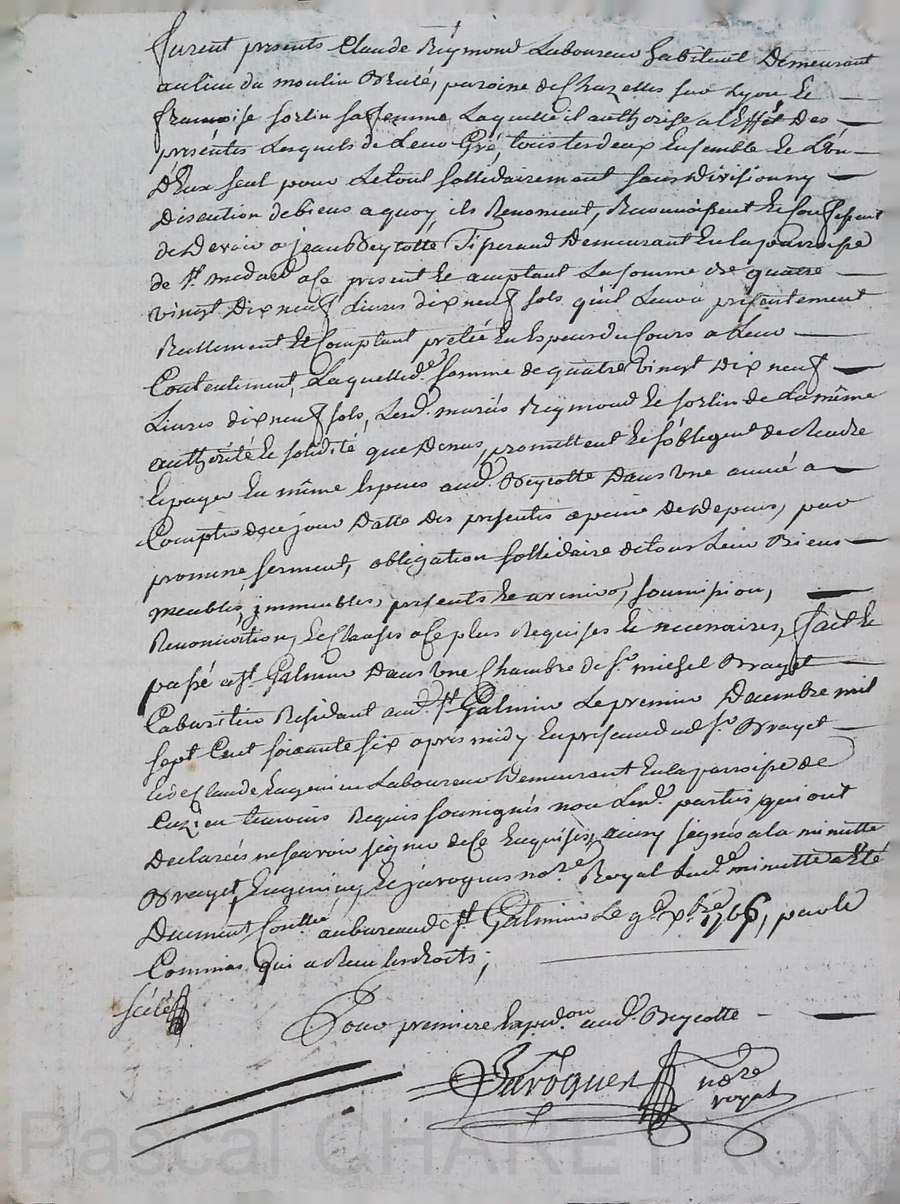 furent presents Claude Reymond Laboureur habiteuil Demeurant
au lieu du moulin Brulé, paroisse de Chazelles sur Lyon et
françoise fortin sa femme Laquelle il authorise a l'Effet des
présentes Lesquels de Leur Gré, tous les deux Ensemble et L'un
d'Eux seul pour Le tout sollidairement sans Division ny
Discution de biens a quoy ils Renoncent, Reconnoissent et Confessent
de Devoir a jean Beycotte Demeurant En la parroisse
de St. medard a ce present et acceptant La somme de quatre
vingt Dix neuf Livres dix neuf sols qu'il Leur a présentement
Reellement et Comptant pretée En Especes du Cours a Leur
Contentement, Laquelle de. somme de quatre vingt Dix neuf
Livres dix neuf sols, Lesd. mariés Reymond et fortin de La même
authorité et solidité que Dessus, promettent et s'obligent de Rendre
et payer En même Especes aud. Beycotte Dans Une année a
Compter de ce jour Datte des presentes a peine de Depens, par
promesse, serment, obligation sollidaire de tous Leurs Biens
meubles, immeubles, présents et avenirs, soumission,
Renonciations, et Clauses a ce plus Requises et necessaires, fait et
passé a St. Galmier Dans Une Chambre de Sr. michel Brayet
Cabaretier Residant aud. St. Galmier Le premier Decembre mil
sept Cent soixante six après midy En presence dud. Sr. Brayet
et de Claude Eugenier Laboureur Demeurant En la parroisse de
Cuzieu temoins Requis soussignés non Lesd. parties qui ont
Declarées ne savoir signer de ce Enquises, ainsy signés a la minutte
Brayet, Eugenier, et jaroquer nore. Royal Lad. minutte a Eté
Duement Conllée. au bureau de St. Galmier Le 9e. xbre 1766, par le
Commis qui a Reçu les droits;
scélé
Pour premiere Expedon aud. Beycotte
Jaroquer nore
royal
Pascal CHAREYRON